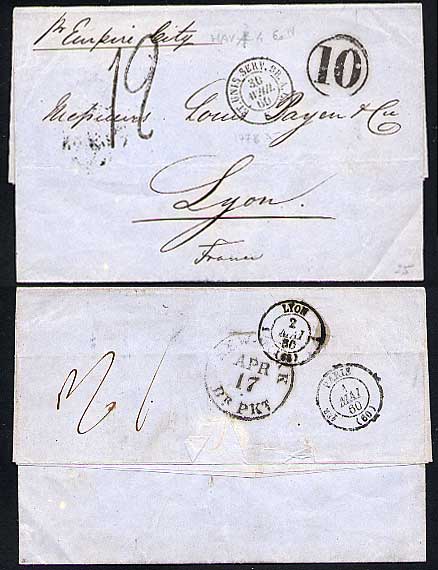 pr Empire City
12
10
ET. UNIS SERV. BR. A.
30
AVRIL
60
Messieurs Louis Payen & Cie
Lyon
France
25
LYON
2
MAI
60
(68)
NEW YORK
APR
17
BR PKT
PARIS
1
MAI
60
(60)